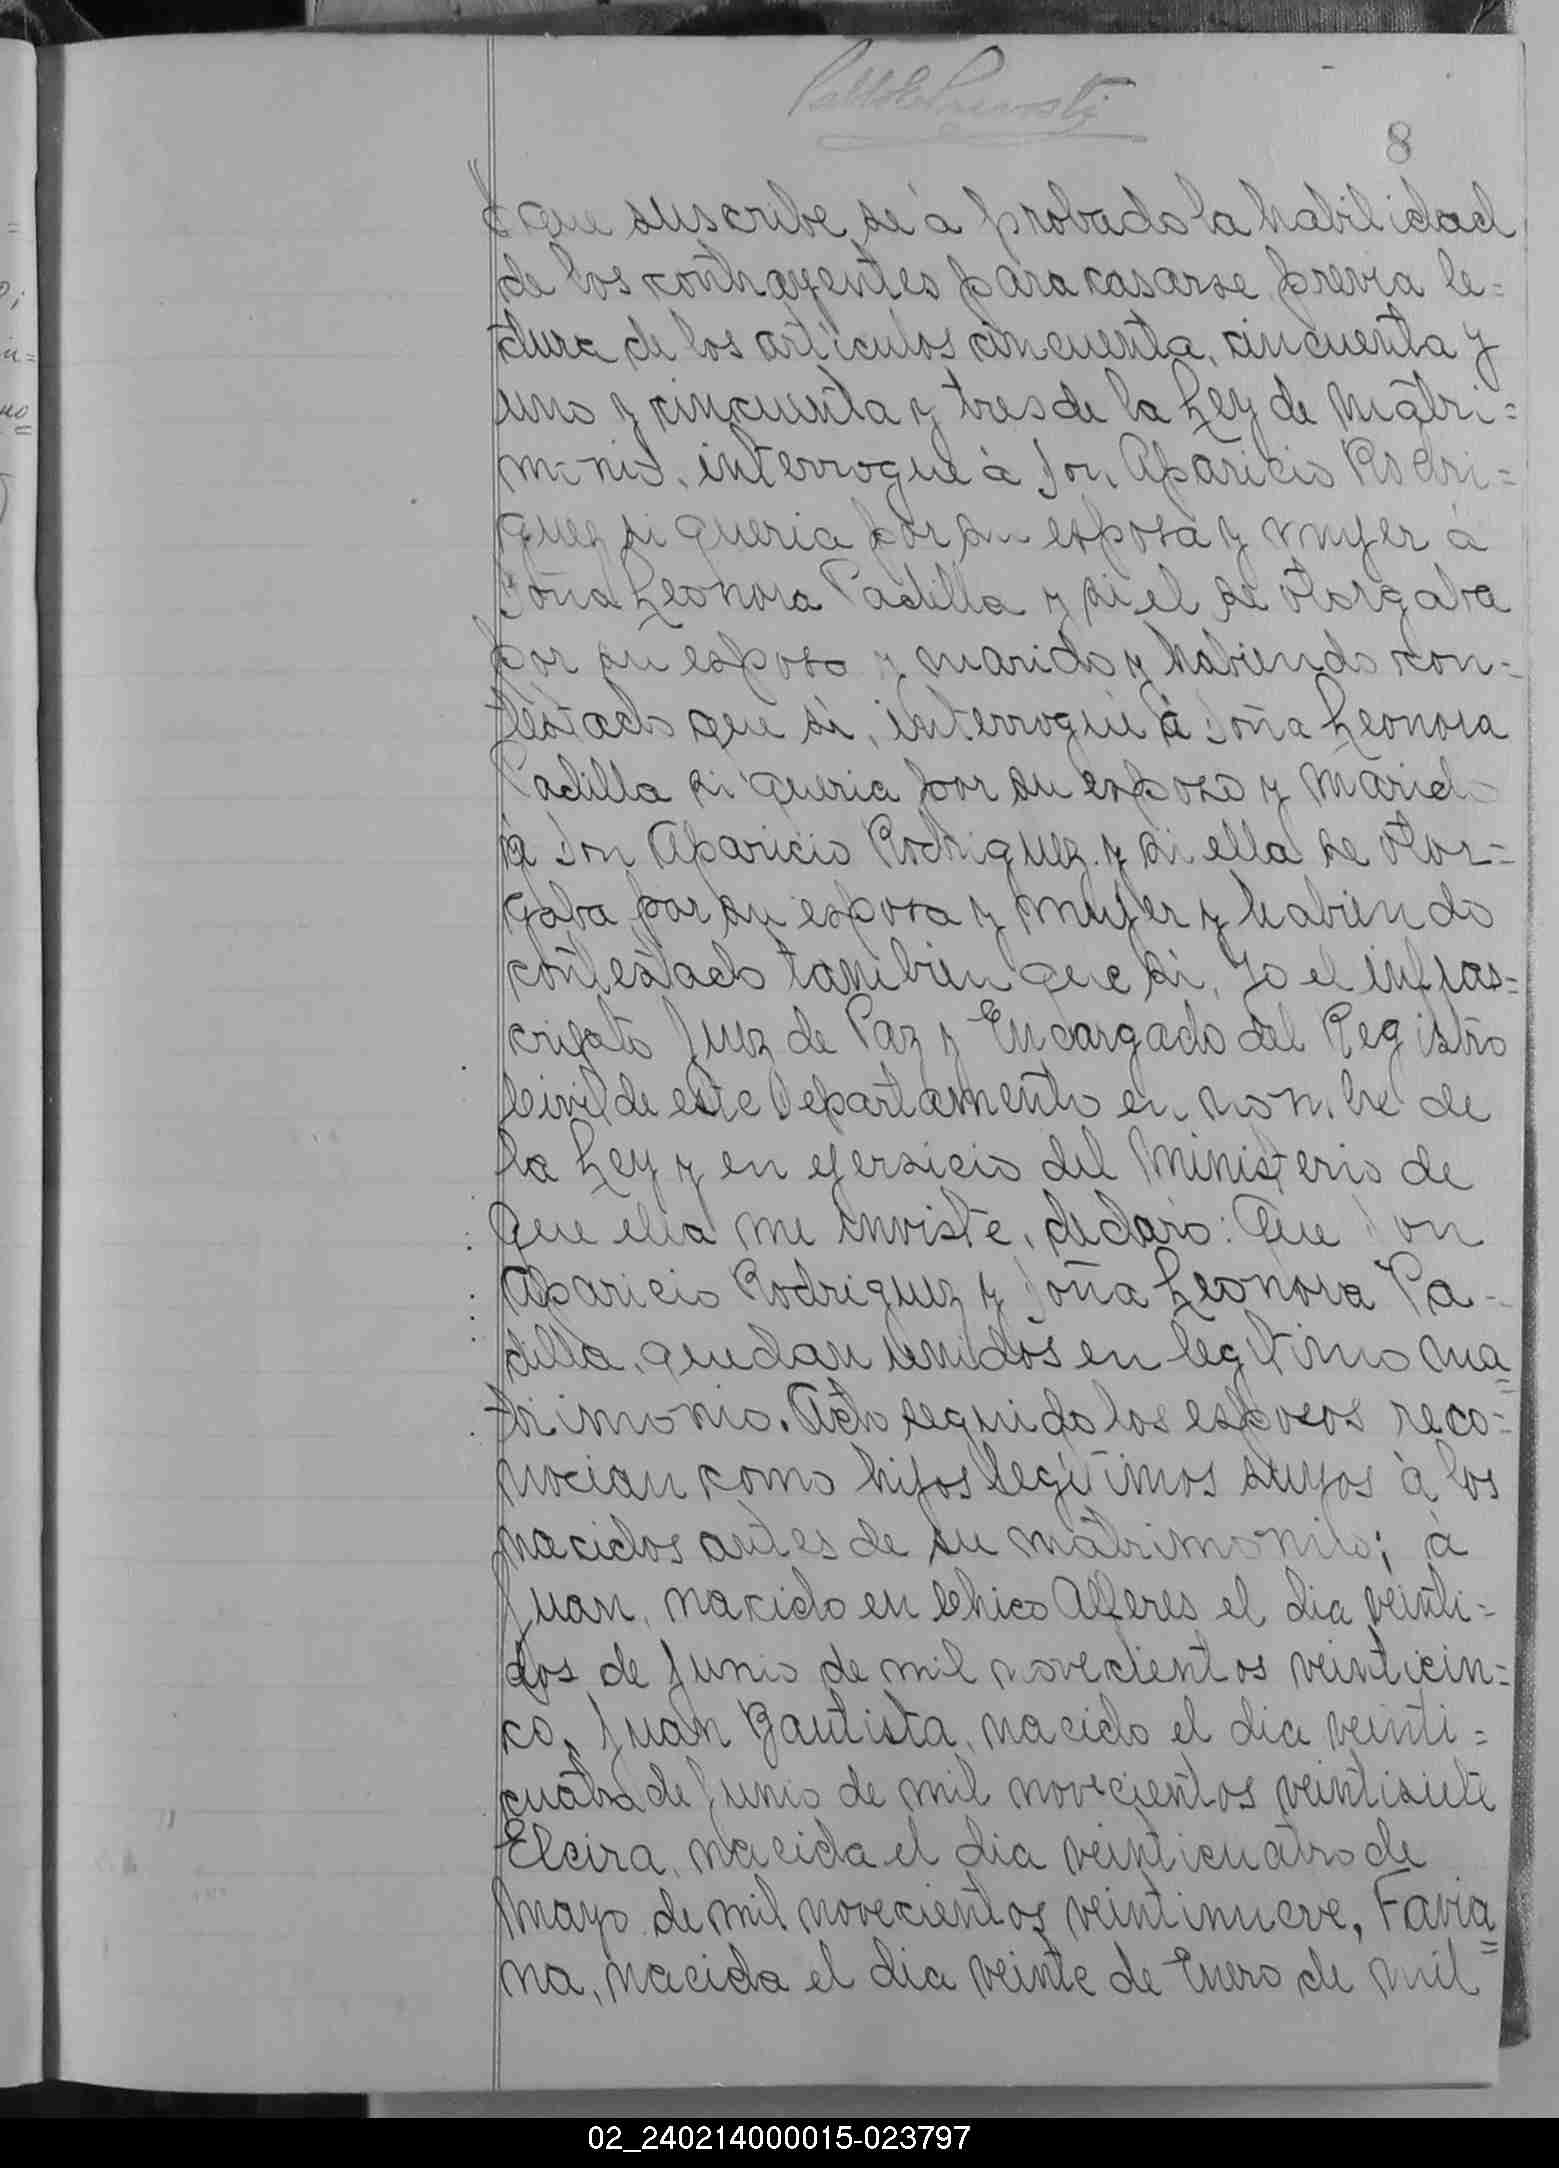 8
que suscribe, se á probado la habilidad
de los contrayentes para casarse, previa le=
ctura de los artículos cincuenta, cincuenta y
uno y cincuenta y tres de la Ley de Matri=
monio, interrogué á Don Aparicio Rodri=
guez si queria por su esposa y mujer á
Doña Leonora Padilla y si el se otorgaba
por su esposo y marido y habiendo con=
testado que si, interrogué á Doña Leonora
Padilla si queria por su esposo y marido
á Don Aparicio Rodriguez y si ella se otor=
gaba por su esposa y mujer y habiendo
contestado tambien que si, Yo el infras=
cripto Juez de Paz y Encargado del Registro
Civil de este Departamento en nombre de
la Ley y en ejersicio del Ministerio de
que ella me inviste, declaro: Que Don
Aparicio Rodriguez y Doña Leonora Pa-
dilla, quedan unidos en legitimo ma=
trimonio. Acto seguido los esposos reco=
nocian como hijos legítimos suyos á los
nacidos antes de su matrimonio; á
Juan, nacido en Chico Alferes el dia veinti=
dos de Junio de mil novecientos veinticin=
co, Juan Bautista, nacido el dia veinti=
cuatro de Junio de mil novecientos veintisiete
Elcira, nacida el dia veinticuatro de
Mayo de mil novecientos veintinueve, Favia=
na, nacida el dia veinte de Enero de mil
02_240214000015-023797